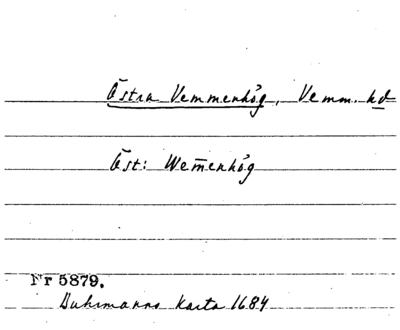 Östra Vemmenhög, Vemm. hd
Öst: Wem̄enhög
Nr 5879.
Buhrmanns karta 1684